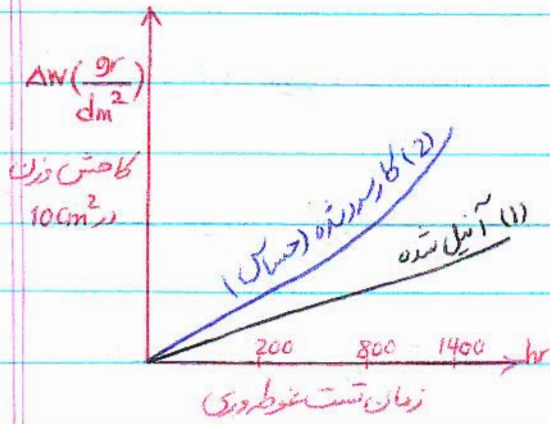 ΔW(gr/dm²)
کاهش وزن
در 10cm²
(2) کار سرد شده (حساس)
(1) آنیل شده
200 800 1400 hr
زمان تست غوطه وری